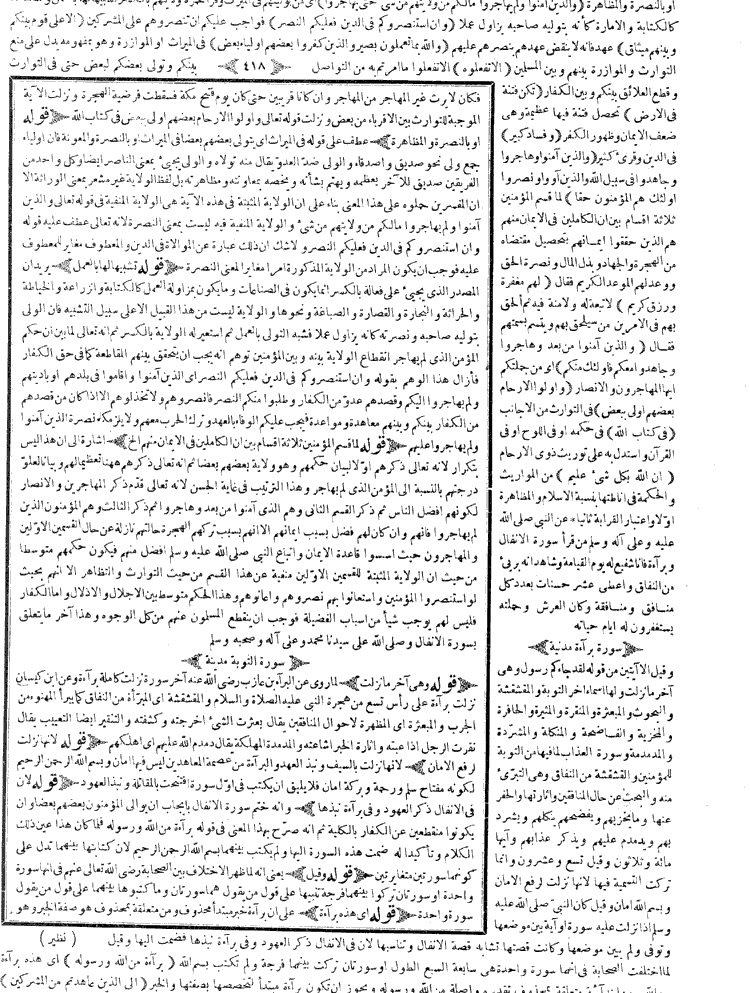 كالكتابة والامارة كأنه بتوليه صاحبه يزاول عملا (وان استنصروكم فى الدين فعليكم النصر) فواجب عليكم ان تنصروهم على المشركين (الا على قوم بينكم
وبينهم ميثاق) عهد فانه لا ينقض عهدهم بنصرهم عليهم (والله بما تعملون بصير والذين كفروا بعضهم اولياء بعض) فى الميراث او الموازرة وهو بمفهومه يدل على منع
التوارث والموازرة بينهم وبين المسلمين (الا تفعلوه) الا تفعلوا ما امرتم به من التواصل
﴿ ٤١٨ ﴾
بينكم وتولى بعضكم لبعض حتى فى التوارث
وقطع العلائق بينكم وبين الكفار (تكن فتنة
فى الارض) تحصل فتنة فيها عظيمة وهى
ضعف الايمان وظهور الكفر (وفساد كبير)
فى الدين وقرئ كثير (والذين آمنوا وهاجروا
وجاهدوا فى سبيل الله والذين آووا ونصروا
اولئك هم المؤمنون حقا) لما قسم المؤمنين
ثلاثة اقسام بين ان الكاملين فى الايمان منهم
هم الذين حققوا ايمانهم بتحصيل مقتضاه
من الهجرة والجهاد وبذل المال ونصرة الحق
ووعد لهم الموعد الكريم فقال (لهم مغفرة
ورزق كريم) لا تبعة له ولا منة فيه ثم الحق
بهم فى الامرين من سيلحق بهم ويتسم بسمتهم
فقال (والذين آمنوا من بعد وهاجروا
وجاهدوا معكم فاولئك منكم) اى من جملتكم
ايها المهاجرون والانصار (واولوا الارحام
بعضهم اولى ببعض) فى التوارث من الاجانب
(فى كتاب الله) فى حكمه او فى اللوح او فى
القرآن واستدل به على توريث ذوى الارحام
(ان الله بكل شئ عليم) من المواريث
والحكمة فى اناطتها بنسبة الاسلام والمظاهرة
اولا واعتبار القرابة ثانيا* عن النبى صلى الله
عليه وعلى آله وسلم من قرأ سورة الانفال
وبرآءة فانا شفيع له يوم القيامة وشاهد انه برئ
من النفاق واعطى عشر حسنات بعدد كل
منافق ومنافقة وكان العرش وحملته
يستغفرون له ايام حياته
﴿ سورة برآءة مدنية ﴾
وقيل الا آيتين من قوله لقد جاءكم رسول وهى
آخر ما نزلت ولها اسماء اخر التوبة والمقشقشة
والبحوث والمبعثرة والمنقرة والمثيرة والحافرة
والمخزية والفاضحة والمنكلة والمشردة
والمدمدمة وسورة العذاب لما فيها من التوبة
للمؤمنين والقشقشة من النفاق وهى التبرئ
منه والبحث عن حال المنافقين واثارتها والحفر
عنها وما يخزيهم ويفضحهم وينكلهم ويشرد
بهم ويدمدم عليهم ويذكر عذابهم وآيها
مائة وثلاثون وقيل تسع وعشرون وانما
تركت التسمية فيها لانها نزلت لرفع الامان
وبسم الله امان وقيل كان النبى صلى الله عليه
وسلم اذا نزلت عليه سورة او آية بين موضعها
فكان لا يرث غير المهاجر من المهاجر وان كانا قريبين حتى كان يوم فتح مكة فسقطت فرضية الهجرة ونزلت الآية
الموجبة للتوارث بين الاقرباء من بعض ونزلت قوله تعالى واولوا الارحام بعضهم اولى ببعض فى كتاب الله ﴿قوله
او بالنصرة والمظاهرة﴾ عطف على قوله فى الميراث اى يتولى بعضهم بعضا فى الميراث او بالنصرة والمعونة فان اولياء
جمع ولى نحو صديق واصدقاء والولى ضد العدو يقال منه تولاه والولى يجئ بمعنى الناصر ايضا وكل واحد من
الفريقين صديق للآخر يعظمه ويهتم بشأنه ويخصه بمعاونته ومظاهرته بل لفظ الولاية غير مشعر بمعنى الوراثة الا
ان المفسرين حملوه على هذا المعنى بناء على ان الولاية المثبتة فى هذه الآية هى الولاية المنفية فى قوله تعالى والذين
آمنوا ولم يهاجروا مالكم من ولايتهم من شئ والولاية المنفية فيه ليست بمعنى النصرة لانه تعالى عطف عليه قوله
وان استنصروكم فى الدين فعليكم النصر ولا شك ان ذلك عبارة عن الموالاة فى الدين والمعطوف مغاير للمعطوف
عليه فوجب ان يكون المراد من الولاية المذكورة امرا مغايرا لمعنى النصرة ﴿قوله تشبيها لها بالعمل﴾ يريد ان
المصدر الذى يجئ على فعالة بالكسر انما يكون فى الصناعات وما يكون بمزاولة العمل كالكتابة والزراعة والخياطة
والحراثة والنجارة والقصارة والصياغة ونحوها والولاية ليست من هذا القبيل الا على سبيل التشبيه فان الولى
بتوليه صاحبه ونصرته كانه يزاول عملا فشبه التولى بالعمل ثم استعير له الولاية بالكسر ثم انه تعالى لما بين ان حكم
المؤمن الذى لم يهاجر انقطاع الولاية بينه وبين المؤمنين توهم انه يجب ان يتحقق بينهم المقاطعة كما فى حق الكفار
فأزال هذا الوهم بقوله وان استنصروكم فى الدين فعليكم النصر اى الذين آمنوا واقاموا فى بلدهم او باديتهم
ولم يهاجروا اليكم وقصدهم عدو من الكفار وطلبوا منكم النصرة فانصروهم ولا تخذلوهم الا اذا كان من قصدهم
من الكفار بينكم وبينهم معاهدة ومواعدة فيجب عليكم الوفاء بالعهد وترك الحرب معهم ولا يلزمكم نصرة الذين آمنوا
ولم يهاجروا عليهم ﴿قوله لما قسم المؤمنين ثلاثة اقسام بين ان الكاملين فى الايمان منهم الخ﴾ اشارة الى ان هذا ليس
بتكرار لانه تعالى ذكرهم اولا لبيان حكمهم وهو ولاية بعضهم بعضا ثم انه تعالى ذكرهم ههنا تعظيما لهم وبيانا لعلو
درجتهم بالنسبة الى المؤمن الذى لم يهاجر وهذا الترتيب فى غاية الحسن لانه تعالى قدم ذكر المهاجرين والانصار
لكونهم افضل الناس ثم ذكر القسم الثانى وهم الذى آمنوا من بعد وهاجروا ثم ذكر الثالث وهم المؤمنون الذين
لم يهاجروا فانهم وان كان لهم فضل بسبب ايمانهم الا انهم بسبب تركهم الهجرة حالتهم نازلة عن حال القسمين الاولين
والمهاجرون حيث اسسوا قاعدة الايمان واتباع النبى صلى الله عليه وسلم افضل منهم فيكون حكمهم متوسطا
من حيث ان الولاية المثبتة للقسمين الاولين منفية عن هذا القسم من حيث التوارث والتظاهر الا انهم بحيث
لو استنصروا المؤمنين واستعانوا بهم نصروهم واعانوهم وهذا الحكم متوسط بين الاجلال والاذلال واما الكفار
فليس لهم يوجب شيأ من اسباب الفضيلة فوجب ان ينقطع المسلمون عنهم من كل الوجوه وهذا آخر ما يتعلق
بسورة الانفال وصلى الله على سيدنا محمد وعلى آله وصحبه وسلم
﴿ سورة التوبة مدينة ﴾
﴿قوله وهى آخر ما نزلت﴾ لما روى عن البرآء بن عازب رضى الله عنه آخر سورة نزلت كاملة برآءة وعن ابن كيسان
نزلت برآءة على رأس تسع من هجرة النبى عليه الصلاة والسلام والمقشقشة اى المبرأة من النفاق كما يبرأ المهنوء من
الجرب والمبعثرة اى المظهرة لاحوال المنافقين يقال بعثرت الشئ اخرجته وكشفته والتنقير ايضا التعييب يقال
نقرت الرجل اذا عبته واثارة الخبر اشاعته والمدمدمة المهلكة يقال دمدم الله عليهم اى اهلكهم ﴿قوله لانها نزلت
لرفع الامان﴾ لانها نزلت بالسيف ونبذ العهد والبرآءة من عصمة المعاهدين ليس فيها امان وبسم الله الرحمن الرحيم
لكونه مفتاح سلم ورحمة وبركة امان فلا يليق ان يكتب فى اول سورة افتتحت بالمقاتلة ونبذ العهود ﴿قوله لان
فى الانفال ذكر العهود وفى برآءة نبذها﴾ وانه ختم سورة الانفال بايجاب ان يوالى المؤمنون بعضهم بعضا وان
يكونوا منقطعين عن الكفار بالكلية ثم انه صرح بهذا المعنى فى قوله برآءة من الله ورسوله فلما كان هذا عين ذلك
الكلام وتأكيدا له ضمت هذه السورة اليها ولم يكتب بينهما بسم الله الرحمن الرحيم لان كتابتها بينهما تدل على
كونهما سورتين متغايرتين ﴿قوله وقيل﴾ يعنى انه لما ظهر الاختلاف بين الصحابة رضى الله تعالى عنهم فى انها سورة
واحدة او سورتان تركوا بينهما فرجة تنبيها على قول من يقول هما سورتان وما كتبوها بينهما على قول من يقول
سورة واحدة ﴿قوله اى هذه برآءة﴾ على ان برآءة خبر مبتدأ محذوف ومن متعلقة بمحذوف هو صفة الخبر وهو
( نظير )
وتوفى ولم يبين موضعها وكانت قصتها تشابه قصة الانفال وتناسبها لان فى الانفال ذكر العهود وفى برآءة نبذها فضمت اليها وقيل
لما اختلفت الصحابة فى انهما سورة واحدة هى سابعة السبع الطول او سورتان تركت بينهما فرجة ولم تكتب بسم الله (برآءة من الله ورسوله) اى هذه برآءة